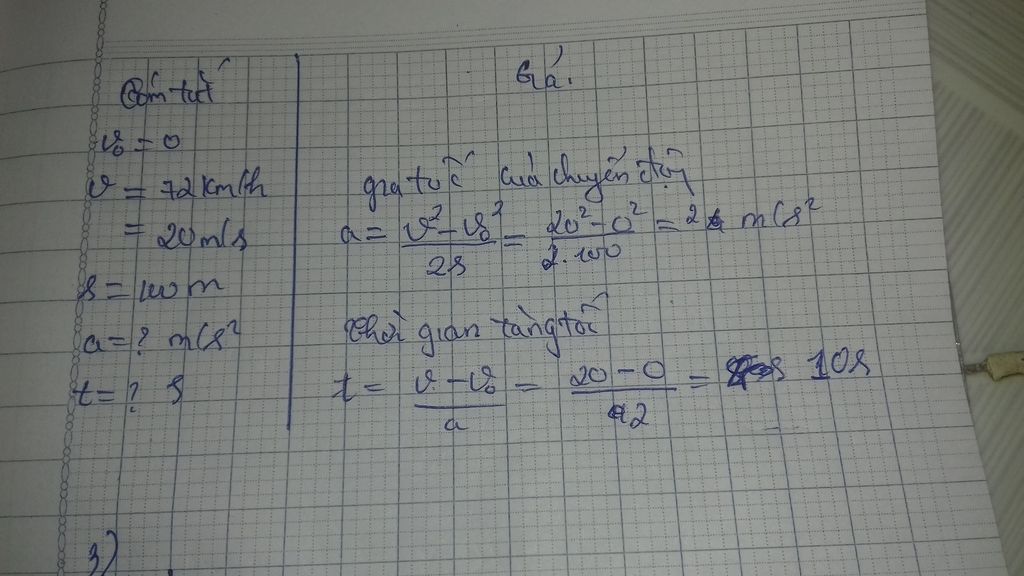 Tóm tắt
v₀ = 0
v = 72 km/h
= 20 m/s
s = 100 m
a = ? m/s²
t = ? s
Giải.
gia tốc của chuyển động
a = (v² - v₀²)/(2s) = (20² - 0²)/(2.100) = 2 m/s²
thời gian tăng tốc
t = (v - v₀)/a = (20 - 0)/2 = 10s
3)